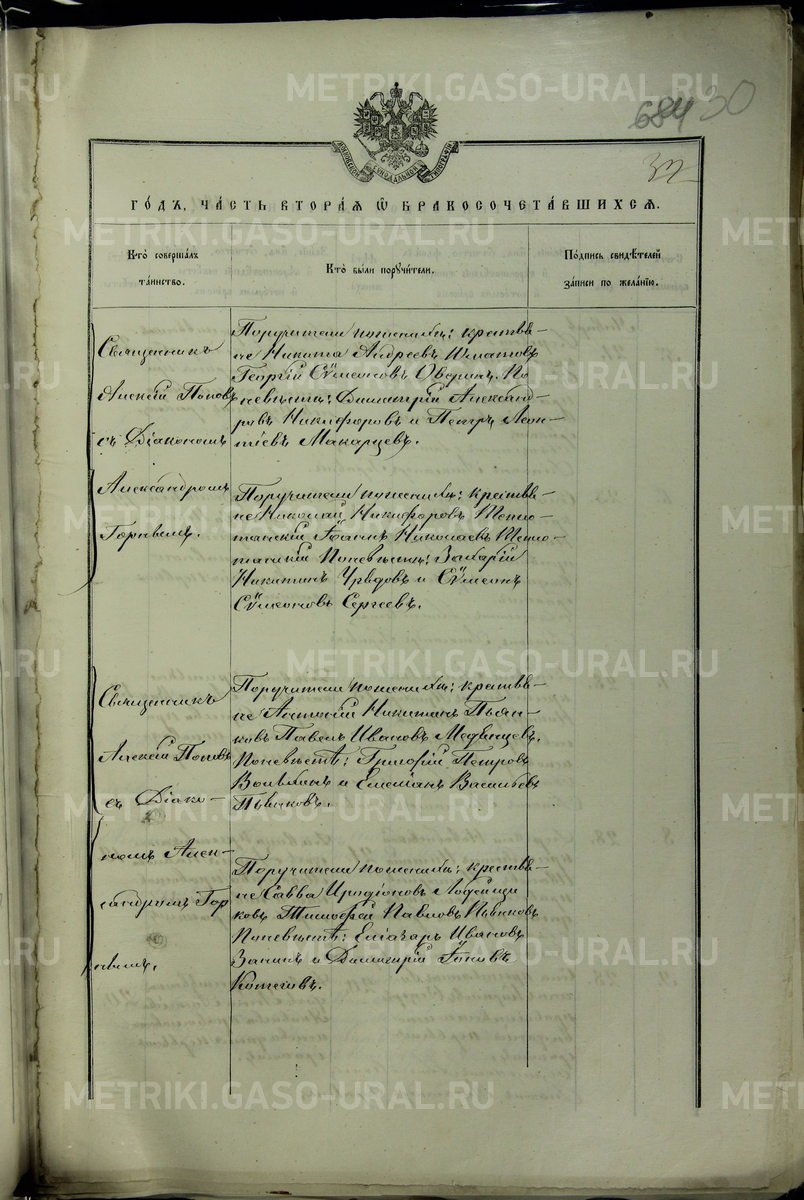 684 30
32
МОСКОВСКОЙ СѴНОДАЛЬНОЙ ТИПОГРАФІИ
ГО́ДЪ, ЧА́СТЬ ВТОРА́Я Ѡ БРАКОСОЧЕТА́ВШИХСЯ.
Кто̀ соверша́лъ
та́инство.
Кто̀ бы́ли порꙋчи́тели.
По́дпись свидѣ́телей
за́писи по жела́нію.
Священникъ
Алексій Поповъ
съ Діакономъ
Александромъ
Поручители по женихѣ: крестья-
не Никита Андреевъ
Георгій Сѵмеоновъ Оверинъ. По
невѣстѣ: Димитрій Александ-
ровъ Никифоровъ и Петръ Леон-
тіевъ Макарцевъ.
Поручители по женихѣ: крестья-
не Николай Никифоровъ
Іоаннъ Николаевъ
По невѣстѣ: Захарій
Никитинъ и Сѵмеонъ
Сѵмеоновъ Сергеевъ.
Священникъ
Алексій Поповъ
съ Діако-
номъ Алек-
сандромъ Гор
Поручители по женихѣ: крестья-
не Антоній Никитинъ Пьян-
ковъ Павелъ Ивановъ
По невѣстѣ: Григорій Петровъ
и Емеліанъ Васильевъ
Пьянковъ.
Поручители по женихѣ: крестья-
не Савва Иродіоновъ
ковъ Тимофей Павловъ Пьянковъ
По невѣстѣ: Елеазаръ Ивановъ
Занинъ и Димитрій
METRIKI.GASO-URAL.RU